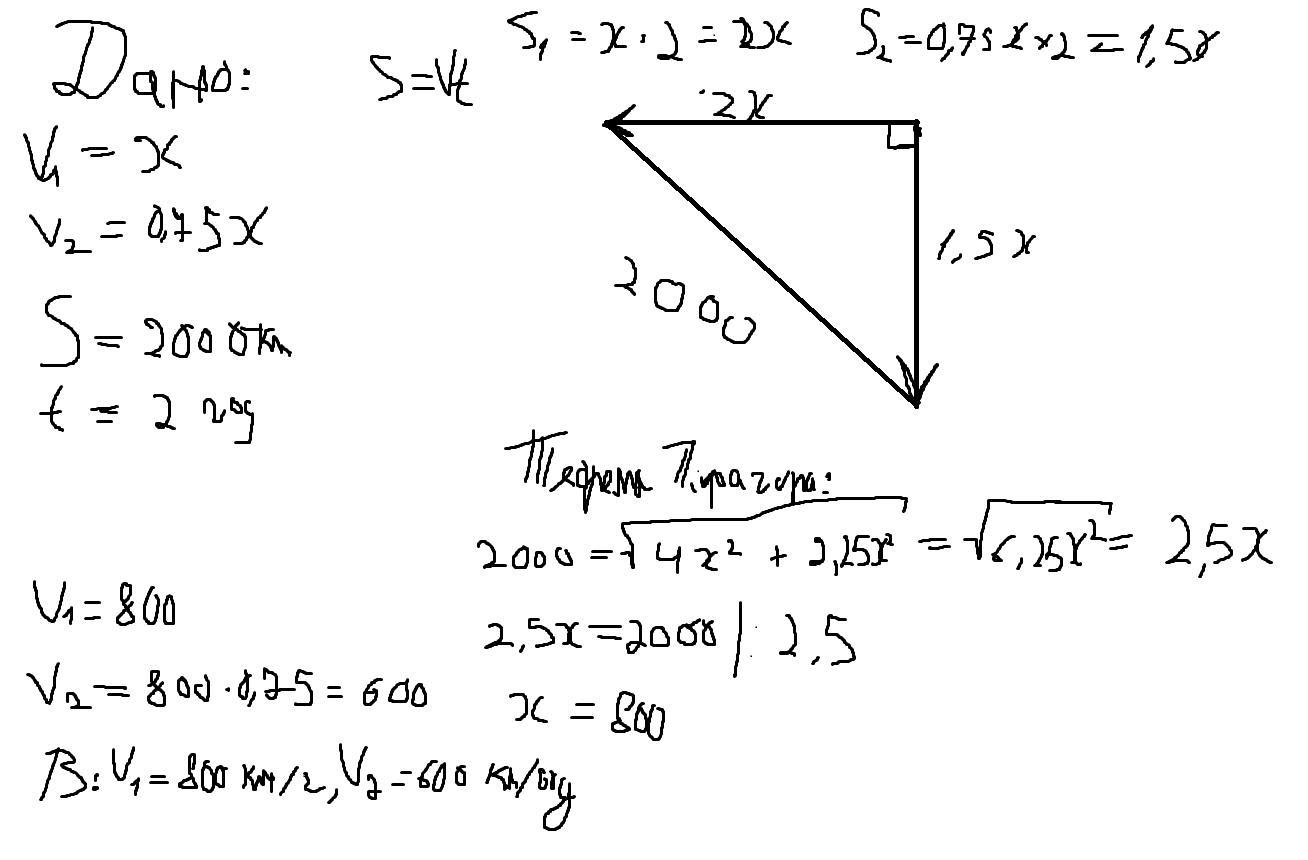 Дано:
S=Vt
S₁ = x · 2 = 2x
S₂ = 0,75x × 2 = 1,5x
V₁ = x
V₂ = 0,75x
S = 2000км
t = 2 год
2x
1,5x
2000
Теорема Піфагора:
2000 = √4x² + 2,25x² = √6,25x² = 2,5x
2,5x = 2000 | : 2,5
x = 800
V₁ = 800
V₂ = 800 · 0,75 = 600
В: V₁ = 800 км/г, V₂ = 600 км/год